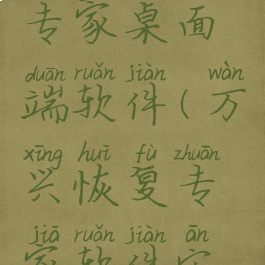 专家桌面
duān ruǎn jiàn wàn
端软件(万
xīng huī fù zhuān
兴恢复专
jiā ruǎn jiàn ān
家软件安